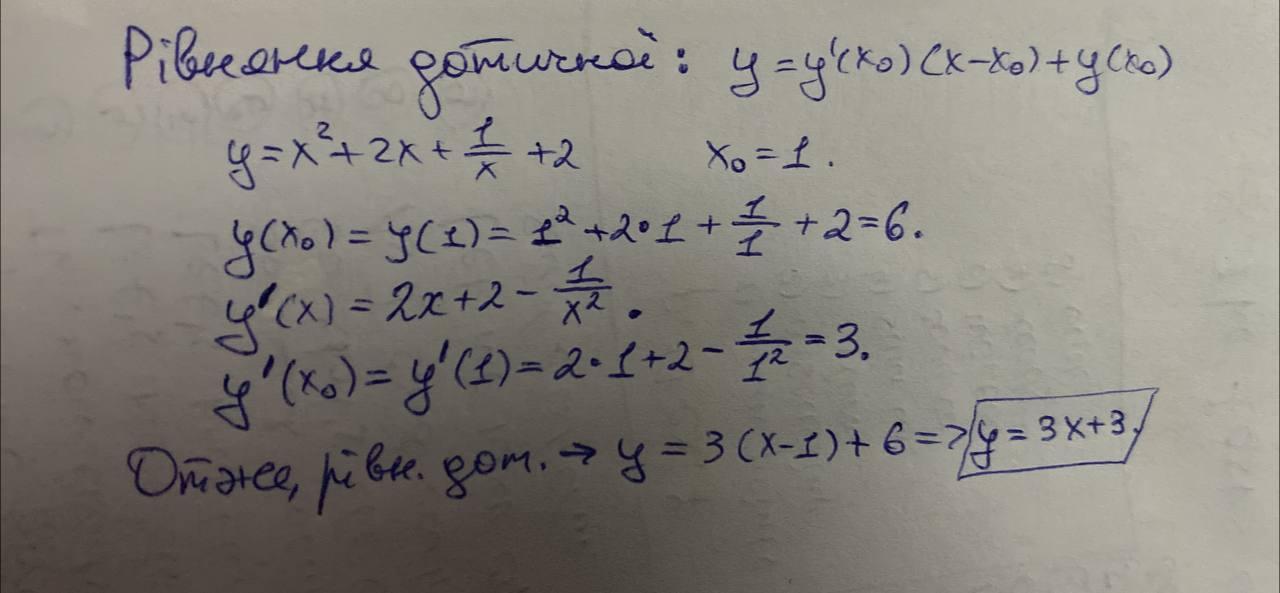 Рівняння дотичної: y = y'(x₀)(x-x₀)+y(x₀)
y = x² + 2x + 1/x + 2 x₀ = 1.
y(x₀) = y(1) = 1² + 2·1 + 1/1 + 2 = 6.
y'(x) = 2x + 2 - 1/x².
y'(x₀) = y'(1) = 2·1 + 2 - 1/1² = 3.
Отже, рівн. дот. → y = 3(x-1) + 6 => y = 3x+3.